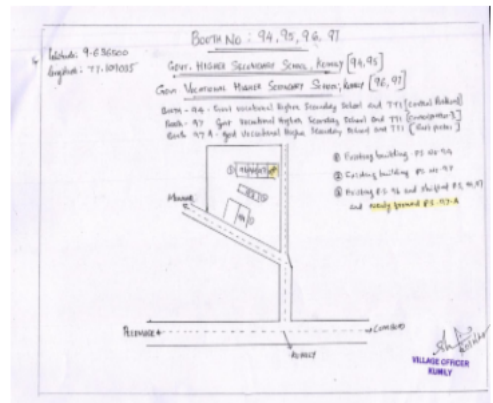 BOOTH NO: 94, 95, 96, 97
Latitude: 9.636500
Longitude: 77.109035
GOVT. HIGHER SECONDARY SCHOOL, KUMILY [94,95]
GOVT VOCATIONAL HIGHER SECONDARY SCHOOL, KUMILY [96, 97]
Booth - 94 - Govt Vocational Higher Secondary School and TTI
Booth - 97 Govt Vocational Higher Secondary School and TTI
Booth 97 A - Govt Vocational Higher Secondary School and TTI
① Existing building PS no 94
② Existing building PS no 97
③ Existing PS 96 and shifted PS
and newly formed PS 97-A
MUNNAR
KUMILY
VILLAGE OFFICER
KUMILY